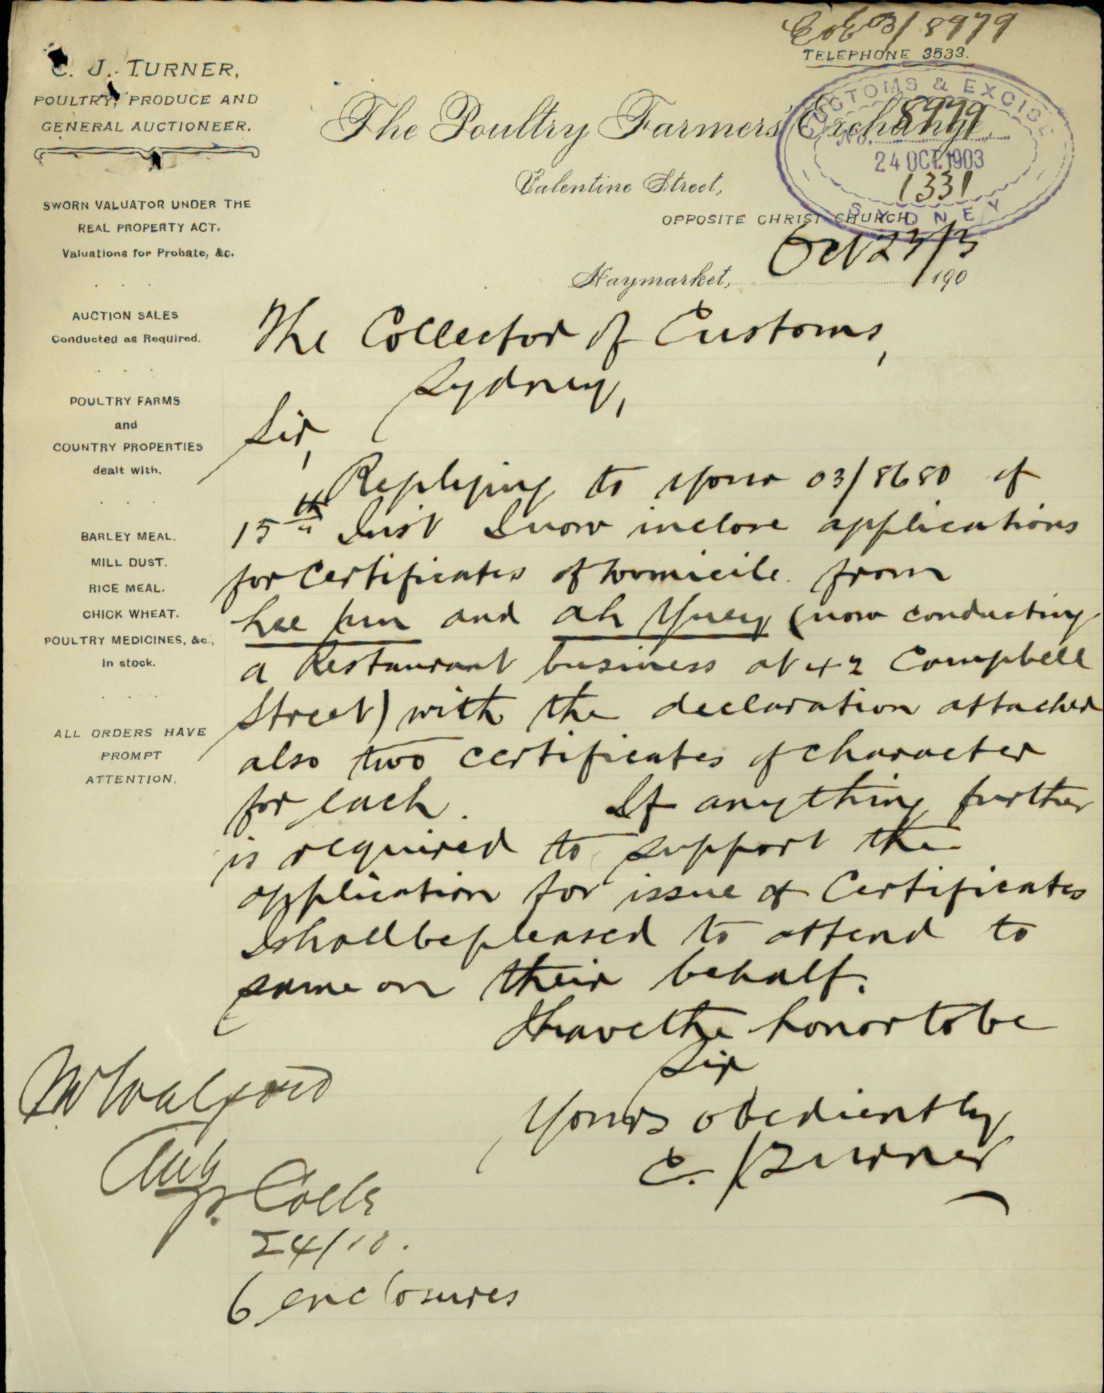 C & E 03/8979
TELEPHONE 3533.
C. J. TURNER,
POULTRY, PRODUCE AND
GENERAL AUCTIONEER.
SWORN VALUATOR UNDER THE
REAL PROPERTY ACT.
Valuations for Probate, &c.
AUCTION SALES
Conducted as Required.
POULTRY FARMS
and
COUNTRY PROPERTIES
dealt with.
BARLEY MEAL.
MILL DUST.
RICE MEAL.
CHICK WHEAT.
POULTRY MEDICINES, &c.,
in stock.
ALL ORDERS HAVE
PROMPT
ATTENTION.
The Poultry Farmers' Exchange,
Valentine Street,
OPPOSITE CHRIST CHURCH,
CUSTOMS & EXCISE
No. 8979
24 OCT. 1903
1331
SYDNEY
Haymarket, Oct 23/3 190
The Collector of Customs,
Sydney,
Sir,
Replying to your 03/8680 of
15th Inst I now inclose applications
for Certificates of Domicile from
Lee Kun and Ah Yuey (now conducting
a Restaurant business at 42 Campbell
Street) with the declaration attached
also two certificates of character
for each. If anything further
is required to support the
application for issue of Certificates
I shall be pleased to attend to
same on their behalf.
I have the honor to be
Sir
Yours obediently
C. J Turner
Mr Walford
Coll
24/10.
6 enclosures